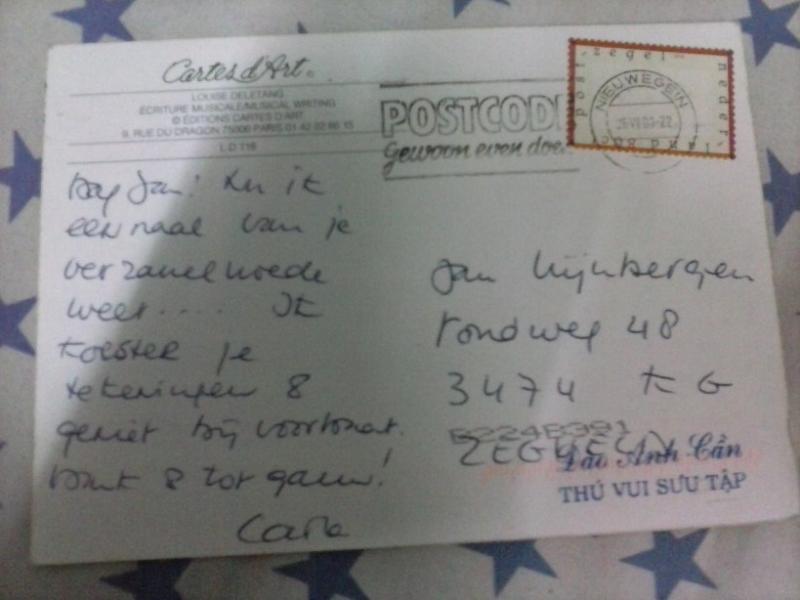 Cartes d'Art
LOUISE DELETANG
ÉCRITURE MUSICALE/MUSICAL WRITING
© ÉDITIONS CARTES D'ART
9, RUE DU DRAGON 75006 PARIS 01 42 22 86 15
LD 116
POSTCODE
Gewoon even doen
postzegel nederland
NIEUWEGEIN
Dag Jan! Nu ik
eenmaal van je
verzamelwoede
weet.... Ik
koester je
tekeningen &
geniet bij voorbaat.
Dank & tot gauw!
Carla
Jan
rondweg 48
3474 KG
ZEGVELD
Đào Anh Cần
THÚ VUI SƯU TẬP